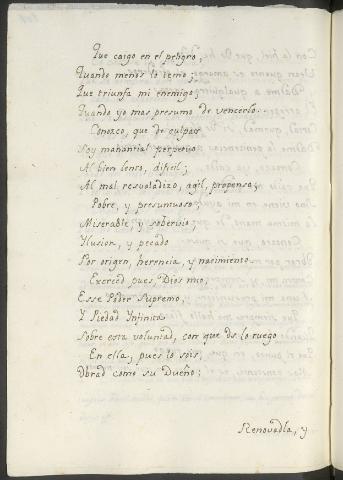 Que caigo en el peligro,
Quando menos lo temo;
Que triunfa mi enemigo;
Quando yo mas presumo de vencerlo.
Conozco, que de culpas
Soy manantial perpetuo
Al bien lento, dificil;
Al mal resvaladizo, agil, propenso;
Pobre, y presumtuoso;
Miserable, y sobervio;
Ylusion, y pecado
Por origen, herencia, y nacimiento.
Exerced pues, Dios mio,
Esse Poder Supremo,
Y Piedad Ynfinita
Sobre esta voluntad, con que os lo ruego
En ella, pues lo sois,
Obrad como su Dueño;
Renovadla, y